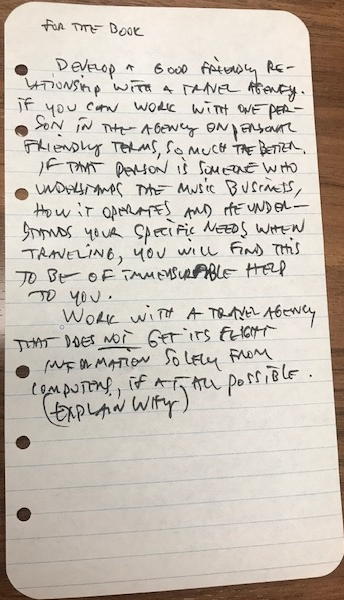 FOR THE BOOK
DEVELOP A GOOD FRIENDLY RE-
LATIONSHIP WITH A TRAVEL AGENCY.
IF YOU CAN WORK WITH ONE PER-
SON IN THE AGENCY ON PERSONAL
FRIENDLY TERMS, SO MUCH THE BETTER.
IF THAT PERSON IS SOMEONE WHO
UNDERSTANDS THE MUSIC BUSINESS,
HOW IT OPERATES AND HE UNDER-
STANDS YOUR SPECIFIC NEEDS WHEN
TRAVELING, YOU WILL FIND THIS
TO BE OF IMMEASURABLE HELP
TO YOU.
WORK WITH A TRAVEL AGENCY
THAT DOES NOT GET ITS FLIGHT
INFORMATION SOLELY FROM
COMPUTERS, IF AT ALL POSSIBLE.
(EXPLAIN WHY)